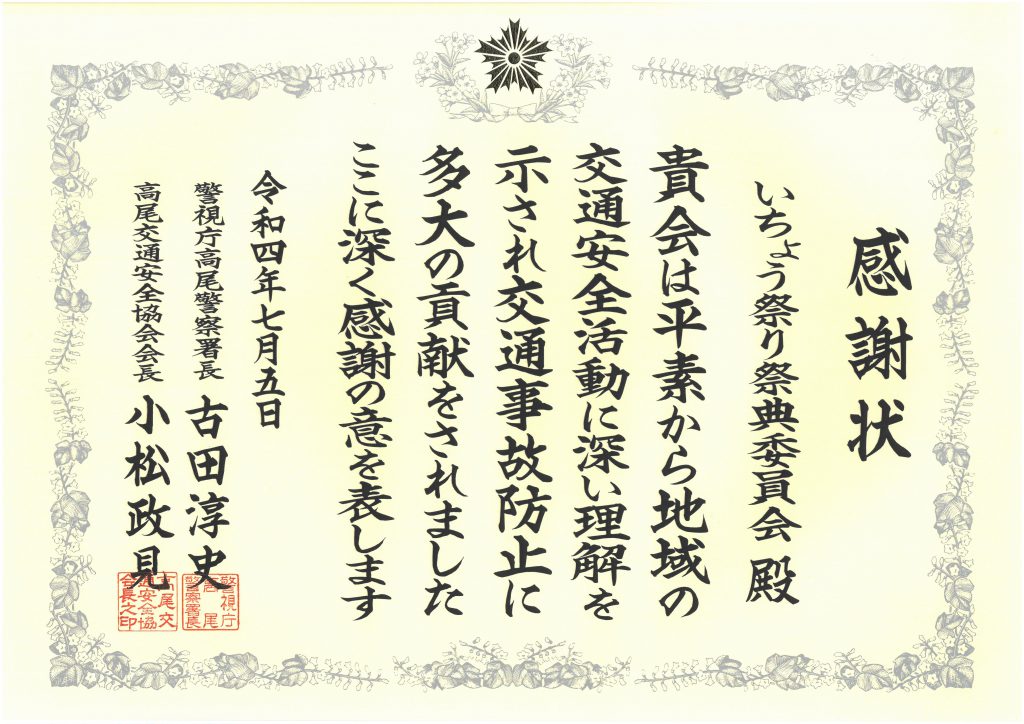 感謝状
いちょう祭り祭典委員会 殿
貴会は平素から地域の
交通安全活動に深い理解を
示され交通事故防止に
多大の貢献をされました
ここに深く感謝の意を表します
令和四年七月五日
警視庁高尾警察署長 古田淳史
高尾交通安全協会会長 小松政見
警視庁
高尾
警察署長
高尾交
通安全協
会長之印